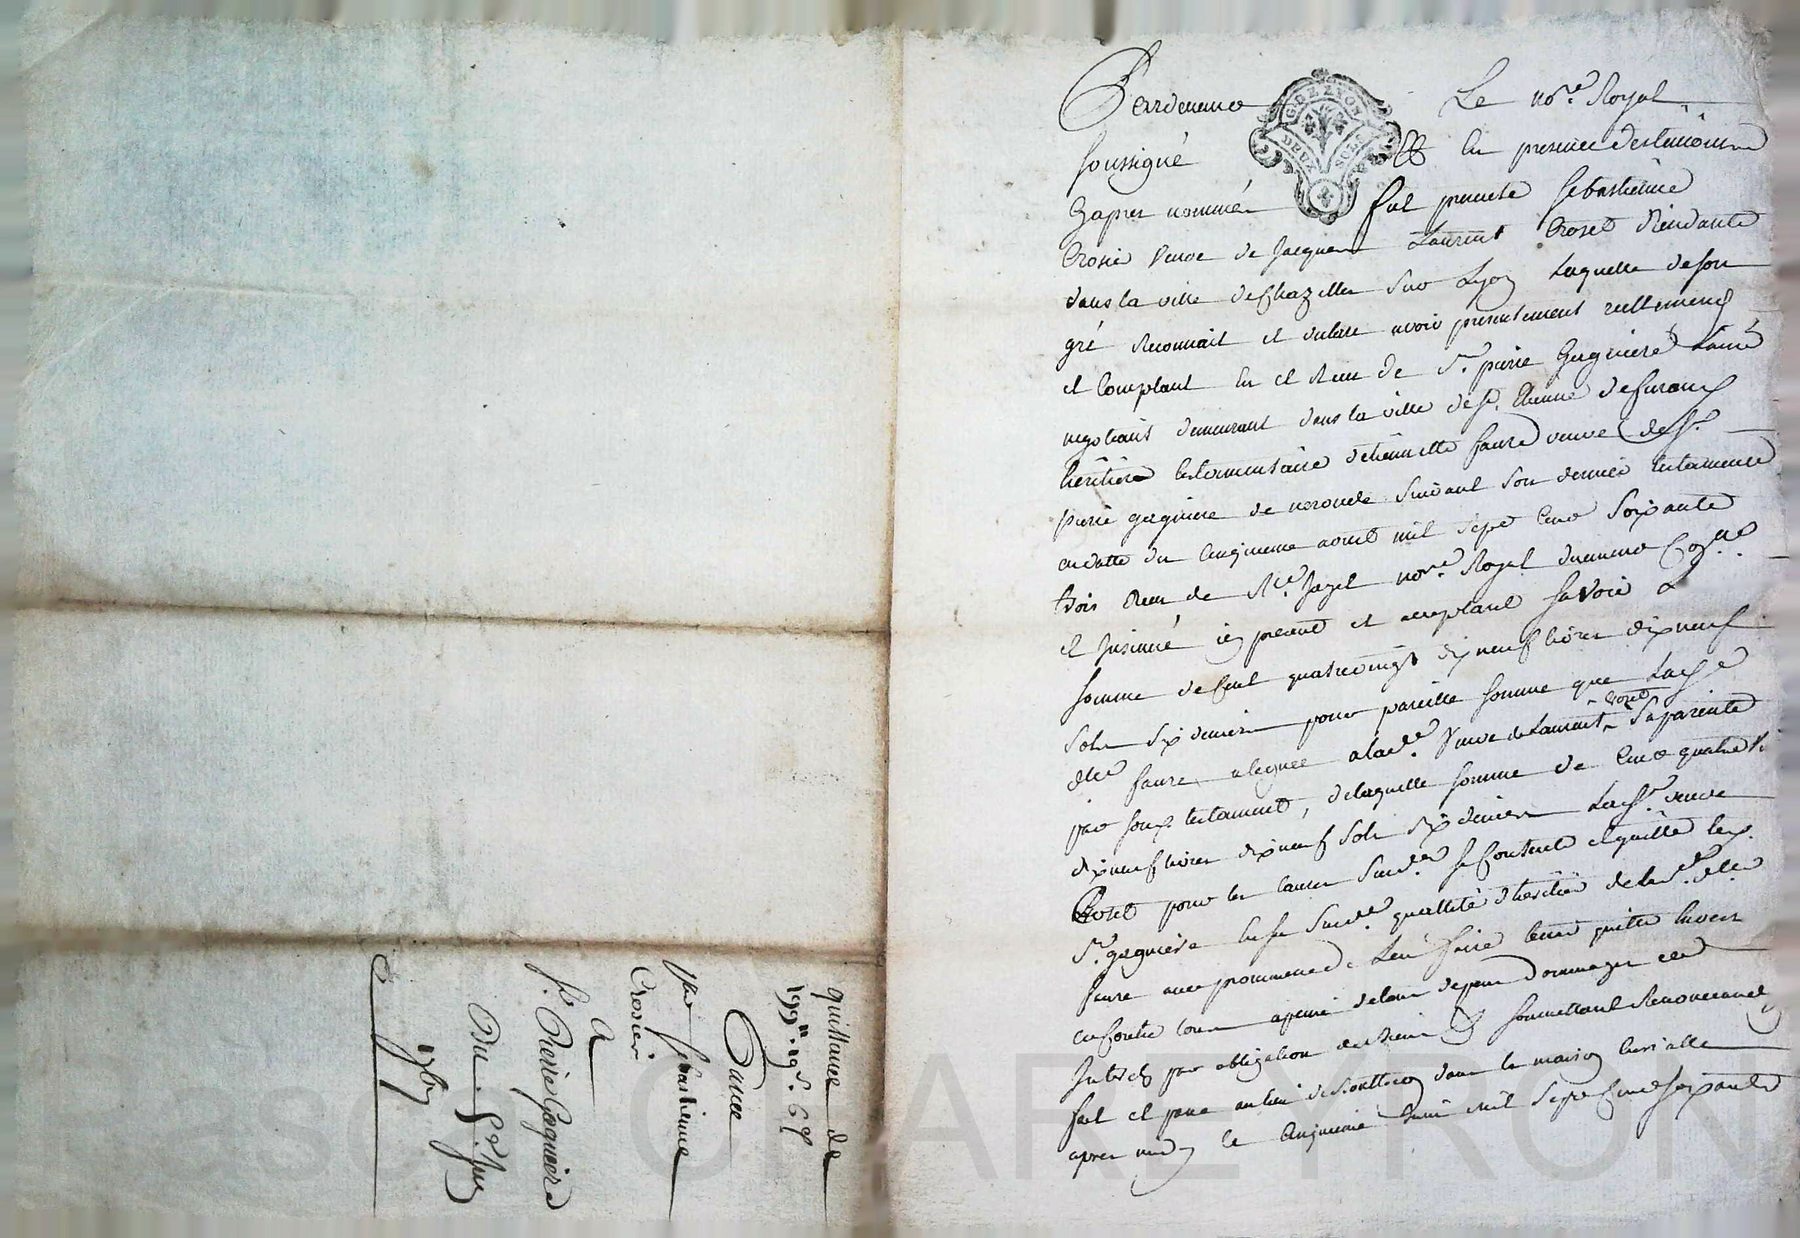 Pardevant Le no.re Royal
soussigné & En presence des témoins
Cy apres nommés fut presente sebastienne
Crosier Veuve de Jacques Laurent Croset Résidante
dans la ville de Chazelles sur Lyon Laquelle de son
gré Reconnait et declare avoir presentement reellement
et Comptant Eu et Receu de S.r pierre Gagnière Lainé
negotiant demeurant dans la ville de S.t Etienne de furans
héritier testamentaire d'etiennette faure veuve de S.r
pierre gagniere de neronde suivant son dernier testament
en datte du cinquieme aout mil sept cent soixante
trois Receu de M.e Jayet no.re Royal
et insinué icy present et acceptant savoir La
somme de Cent quatrevingt dix neuf livres dix neuf
sols six deniers pour pareille somme que Lad.e
d.lle faure a leguée a lad.e Veuve de Laurent Croset sa parente
par son testament, de laquelle somme de Cent quatre vingt
dix neuf livres dix neuf sols six deniers Lad. veuve
Croset pour les causes susd.es se contente et quitte led.
S.r gagniere en sa susd.e quallité d'heritier de lad.e d.lle
faure avec promesse de Len faire tenir quitte Envers
et Contre tous a peine de tous depens dommages et
Interets par obligation de biens soumettant Renonceant
fait et passé au lieu de dans la maison curialle
apres midy le cinquieme mil sept Cent soixante
quittance de
199# 19s. 6d
Passée
par sebastienne
Crosier
A
S.r Pierre Gagnière
Du 5e
176
G DE LYON
DEUX SOLS
CHAREYRON